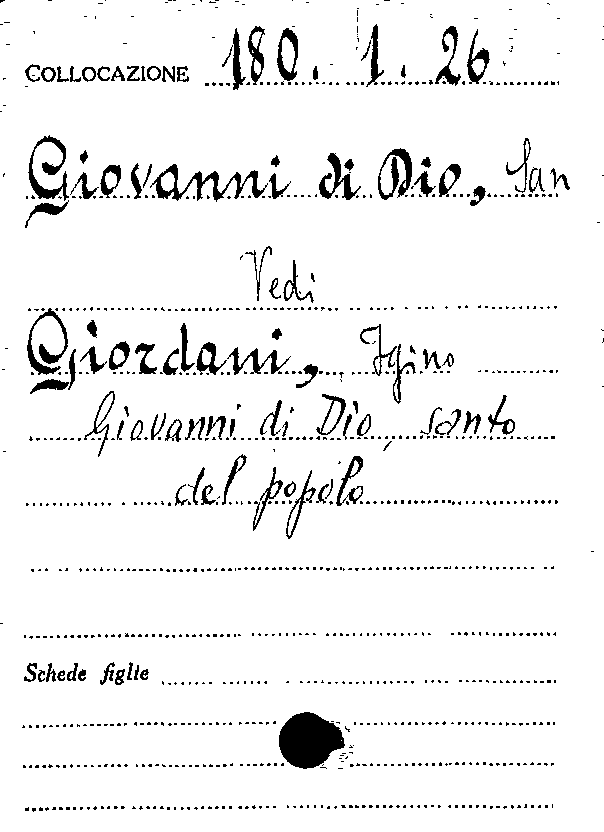 COLLOCAZIONE 180. 1. 26
Giovanni di Dio, San
Vedi
Giordani, Igino
Giovanni di Dio, santo
del popolo
Schede figlie